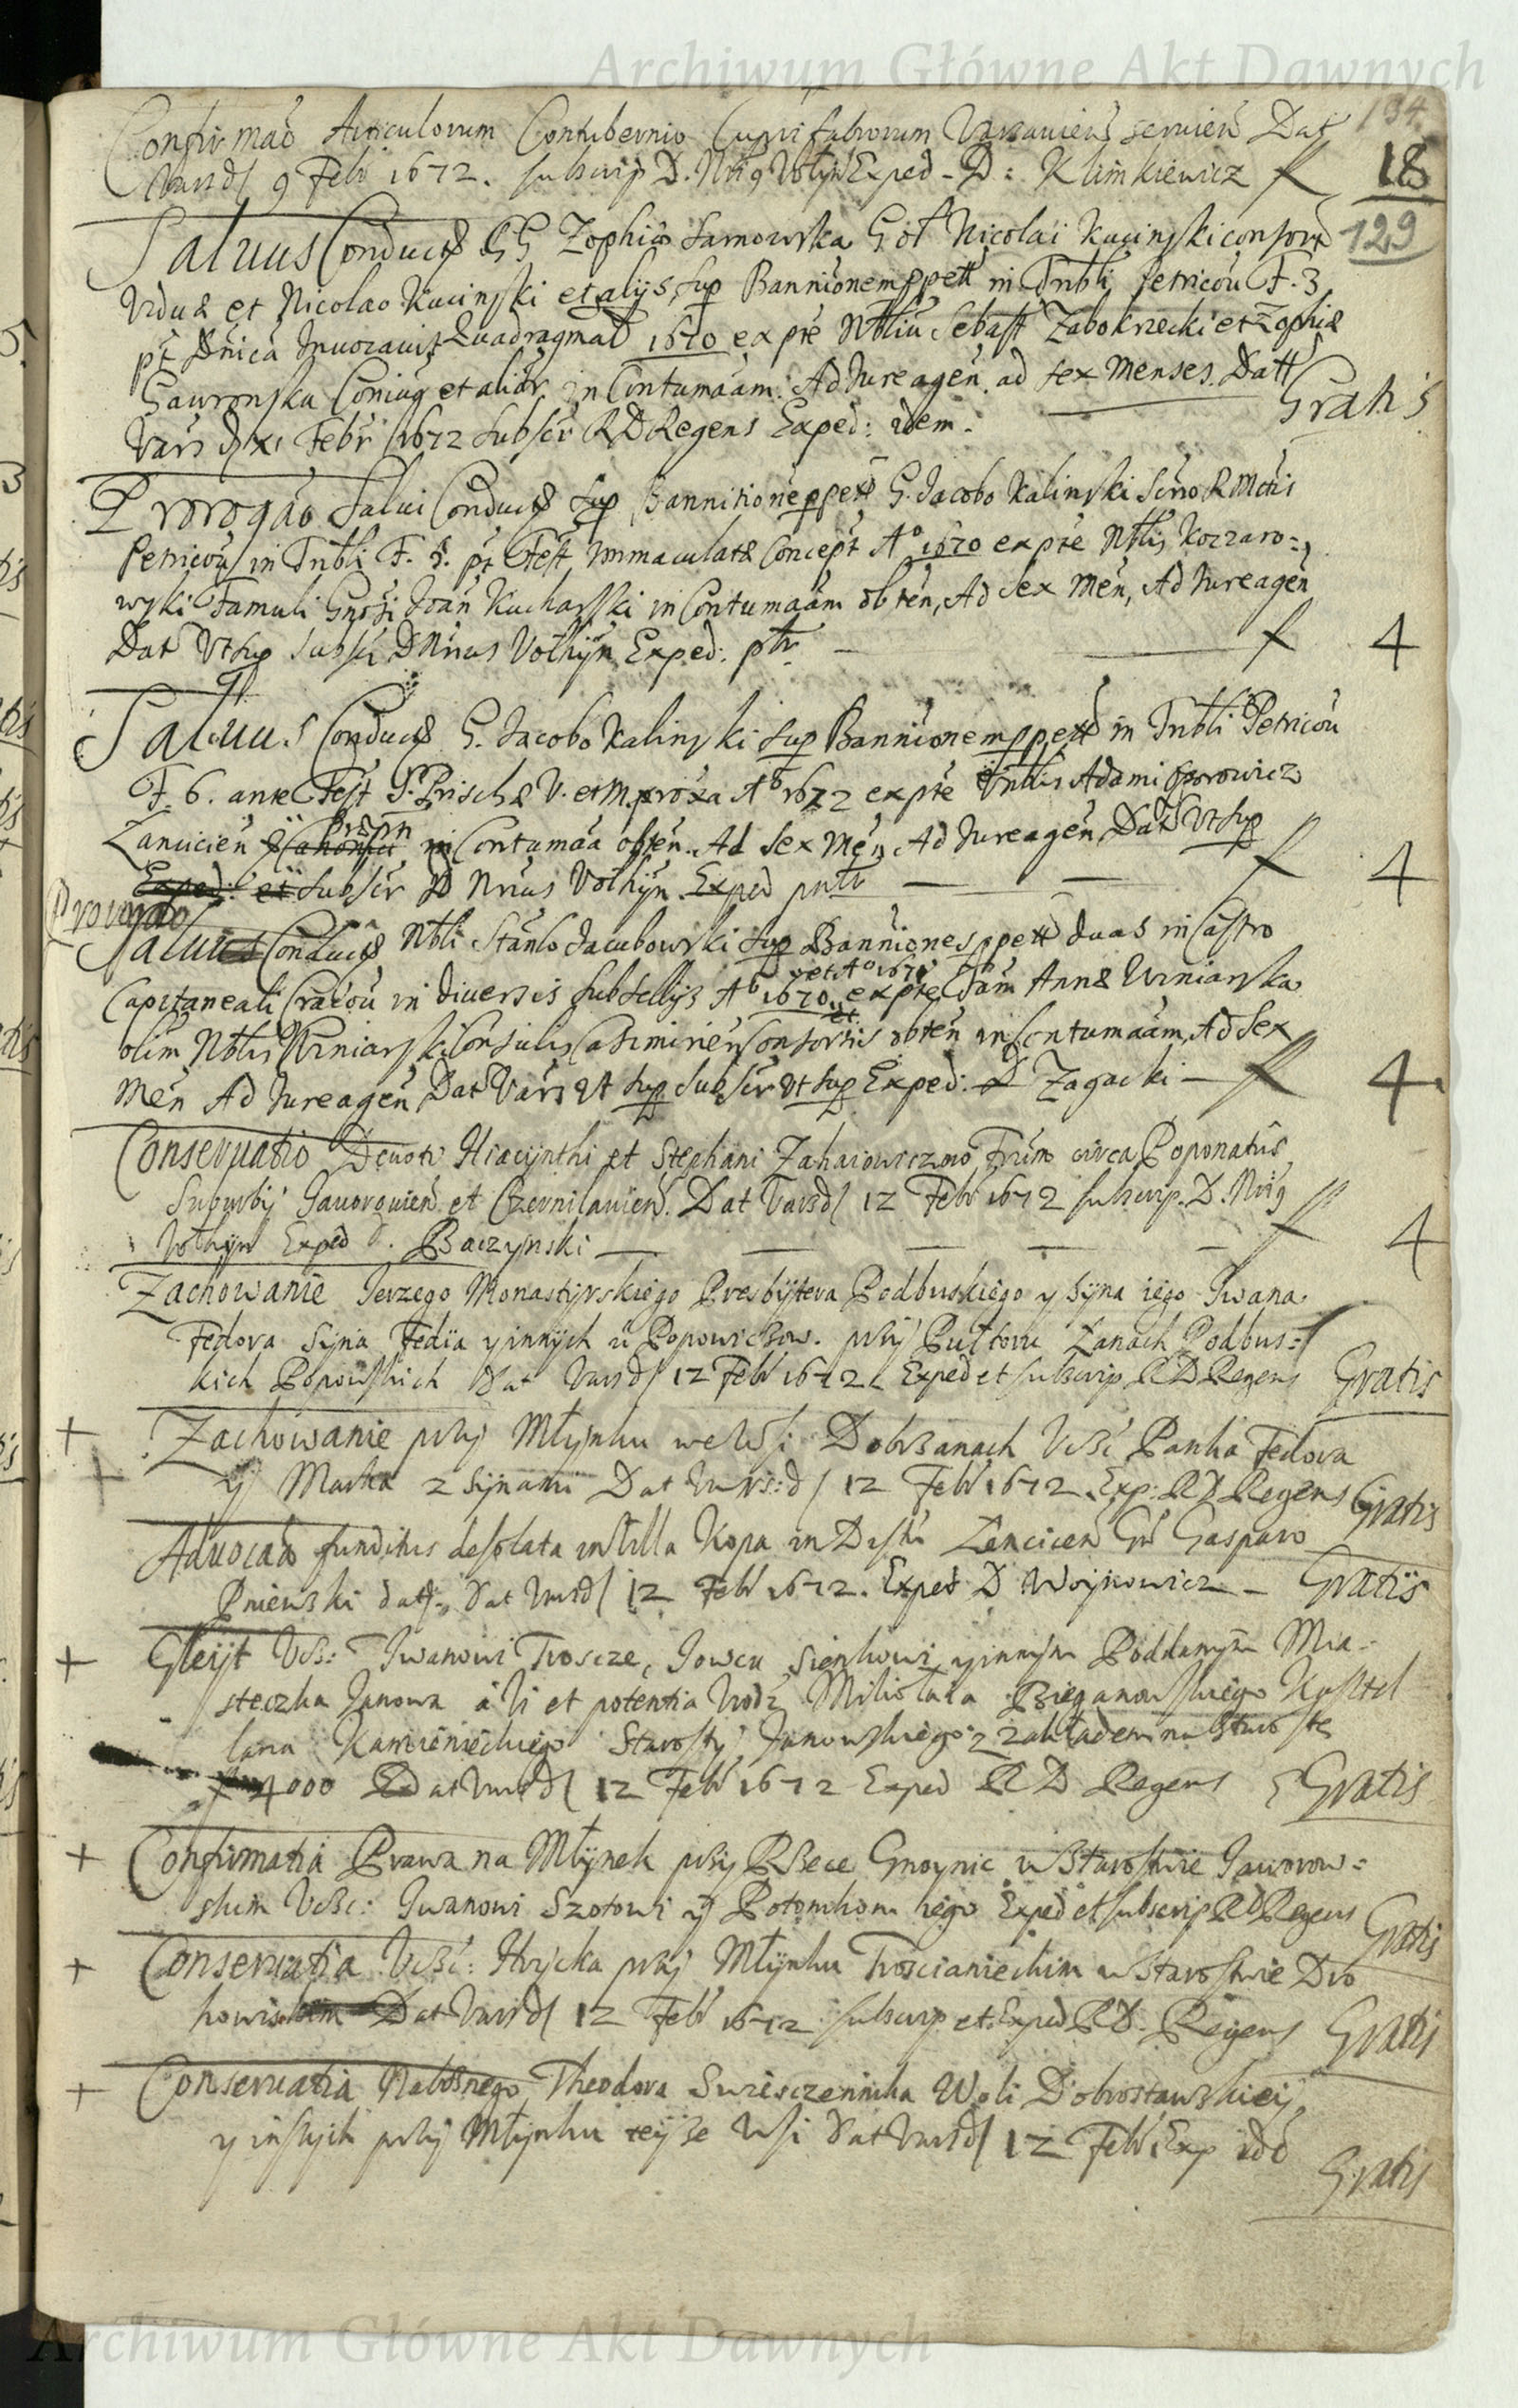 Archiwum Główne Akt Dawnych
134
Confirmao Articulorum Contubernio Cuprifabrorum Varsaviens servien Dat
Vars d 9 Febr 1672. subscrip D. Nrius Volhyn Exped - D: Klimkiewicz f 18
129
Salvus Conduct GG Zophia Sarnowska G ol Nicolai Kucinski consors
Vidua et Nicolao Kucinski et alijs sup Bannionem ppett in Tribli Petricou F. 3
pt Dnica Invocavit Quadragmal 1670 ex pte Nbliu Sebast Zabokrzecki et Zophia
Gawronska Coniug et alior in Contumaam. Ad Iure agen ad sex Menses. Datt
Vars d XI Febr 1672 Subscr RD Regens Exped: idem. Gratis
Prorogao Salui Conduct sup Bannitione ppett G. Jacobo Kalinski Servo R Mttis
Petricou in Tribli F. 3. pt Fest Immaculata Concept A° 1670 ex pte Nblis Kozzaro=
wski Famuli Gnosi Joan Kucharski in Contumaam obten, Ad Sex Men, Ad Iure agen
Dat Vt sup Subscr D Nrius Volhyn Exped: ptr f 4
Salvus Conduct G. Jacobo Kalinski sup Bannionem ppett in Tribli Petricou
F. 6. ante Fest S. Prisca V. et M. proxa A° 1672 ex pte Nblis Adami
Lanicien Canonici in Contumaa obten. Ad Sex Men Ad Iure agen Dat Vt sup
Exped: et Subscr D Nrius Volhyn. Exped pntr f 4
Prorogao
Salvus Conduct Nbli Stanlo Jacubowski sup Banniones ppett duas in Castro
et A° 1671
Capitaneali Cracou in diversis subsellijs A° 1670 ex pte Fam Anna Urniarska
olim Nblis Urniarski Consulis Casimirien Consortis obten in Contumaam, Ad Sex
Men Ad Iure agen Dat Vars Vt sup Subscr Vt sup Exped: D Zagacki - f 4
Conservatio Devotor Hiacynthi et Stephani Zahaiowiczow Frum circa Poponatus
Suburbij Javorovien et Czernilavien. Dat Vars d 12 Febr 1672 subscrip. D. Nrius
Volhyn Exped D. Baczynski f 4
Zachowanie Jerzego Monastyrskiego Presbytera Podbuskiego y syna iego Iwana
Fedora Syna Fedia y innych Popowiczow. przy Pułłoru Łanach Podbus=
kich Popowskich Dat Vars d 12 Febr 1672 Exped et subscrip RD Regens Gratis
+ Zachowanie przy Młynku we Wsi Dobrzanach Ucżć Pańka Fedora
+ y Marka z synami Dat Vars: d 12 Febr 1672 Exp: RD Regens Gratis
Advocao funditus desolata in Villa Kopa in Distri Lencicen Gn Gasparo
Pniewski dat., Dat Vars d 12 Febr 1672. Exped D Woynowicz - Gratis
+ Gleyt Ucż: Iwanowi Troscze, Iowcu Sienkowi y innym Poddanym Mia-
steczka Janowa a Vi et potentia Urodz Mikołaia Bieganowskiego Kasztel
lana Kamienieckiego Starosty Janowskiego z zakładem na Staroste
f 4000 Dat Vars d 12 Febr 1672 Exped RD Regens Gratis
+ Confirmatia Prawa na Młynek przy Rzece Gnoynic w Starostwie Jaworow=
skim Uczc: Iwanowi Szotowi y Potomkom iego Exped et subscrip RD Regens Gratis
+ Conservatia Ucżć: Hrycka przy Młynku Troscianieckim w Starostwie Dro
howiskim Dat Vars d 12 Febr 1672 subscrip et Exped RD. Regens Gratis
+ Conservatia Nabożnego Theodora Swiesczennika Woli Dobrostanskiey
y inszych przy Młynku teyże Wsi Dat Vars d 12 Febr Exp id Gratis
Archiwum Główne Akt Dawnych